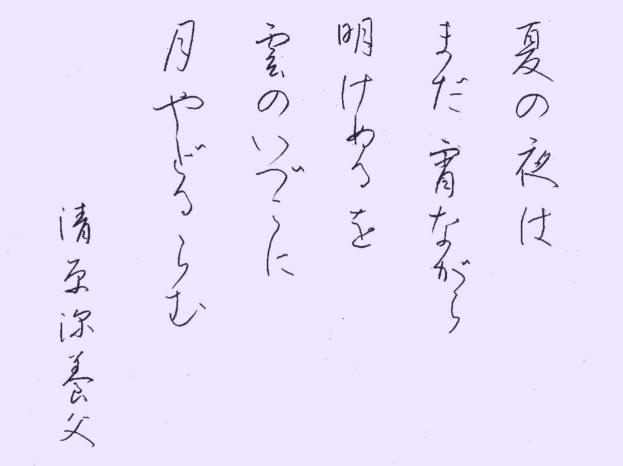 夏の夜は
まだ宵ながら
明けぬるを
雲のいづこに
月やどるらむ
清原深養父